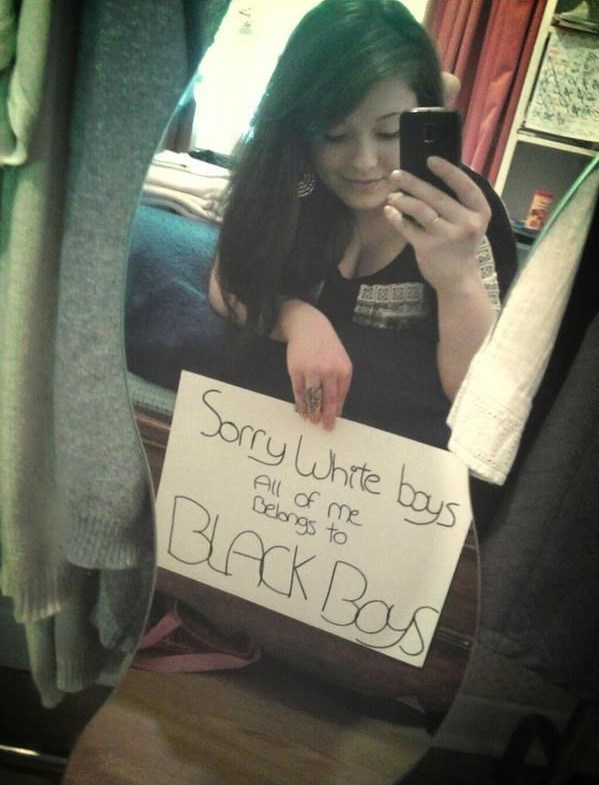 Sorry White boys
All of me
Belongs to
BLACK Boys